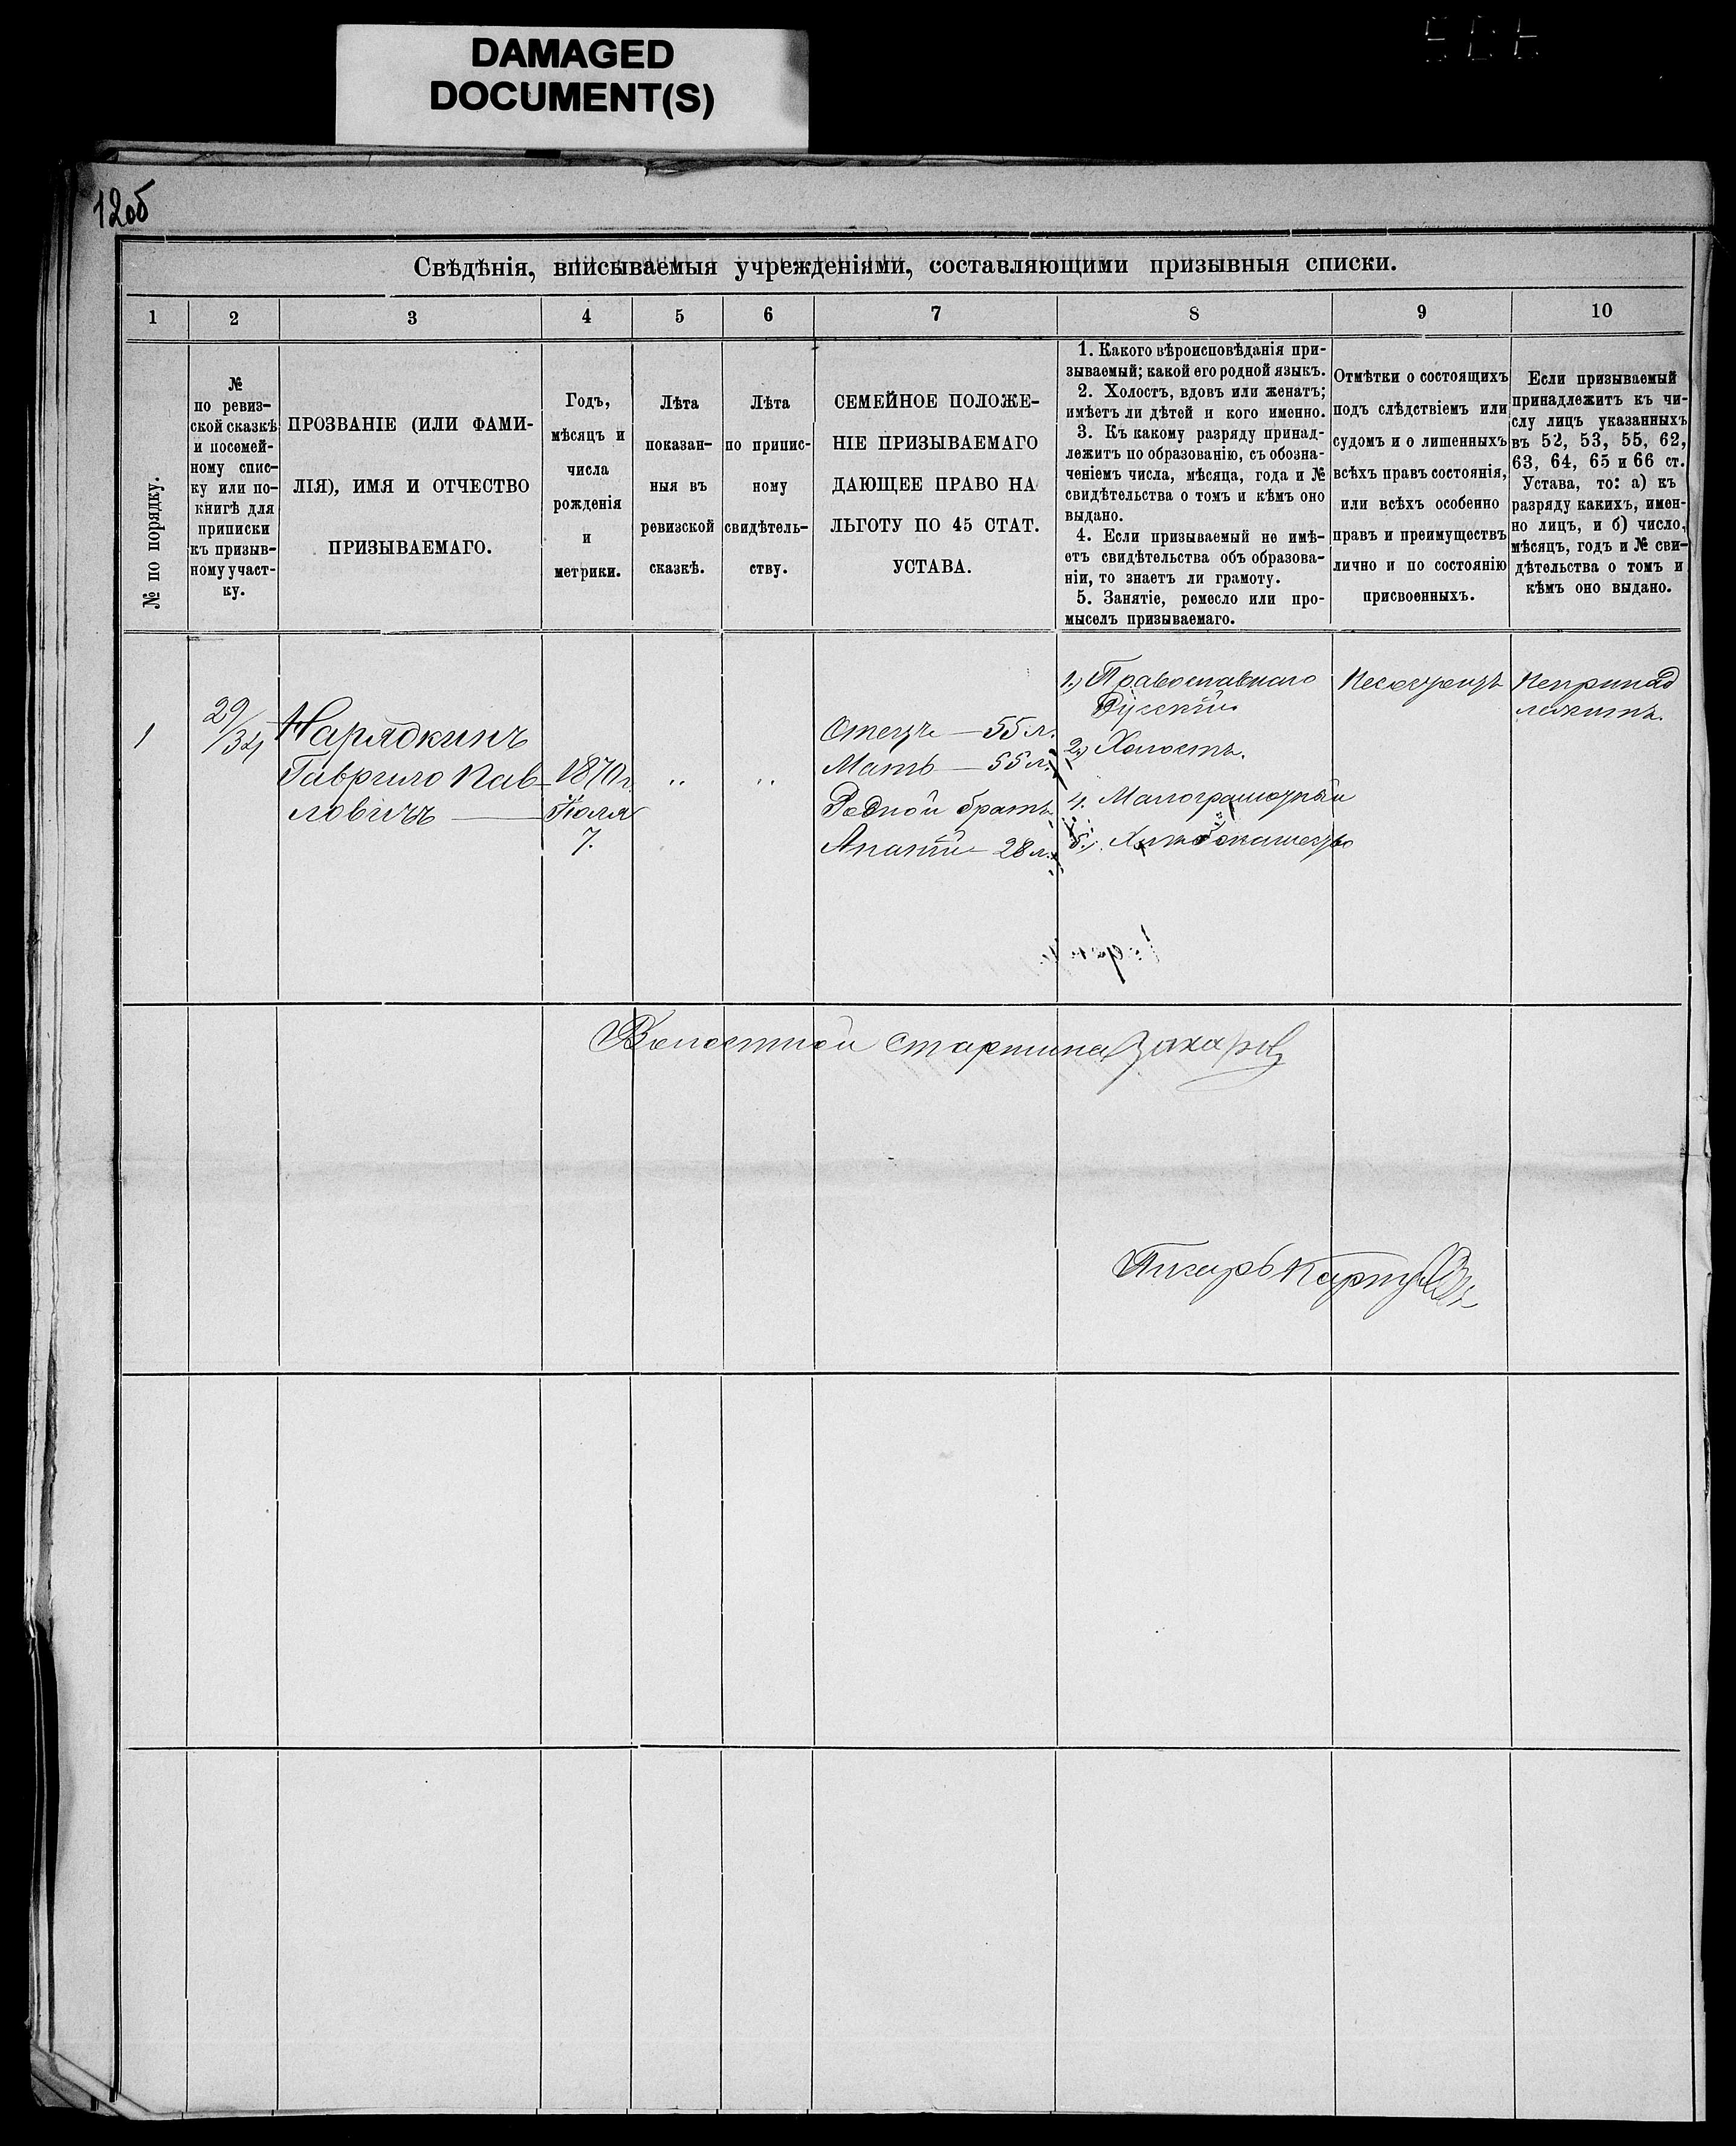 DAMAGED
DOCUMENT(S)
12об
Свѣдѣнія, вписываемыя учрежденіями, составляющими призывныя списки.
1 2 3 4 5 6 7 8 9 10
№ по порядку.
№
по ревиз-
ской сказкѣ
и посемей-
ному спис-
ку или по-
книгѣ для
приписки
къ призыв-
ному участ-
ку.
ПРОЗВАНІЕ (ИЛИ ФАМИ-
ЛІЯ), ИМЯ И ОТЧЕСТВО
ПРИЗЫВАЕМАГО.
Годъ,
мѣсяцъ и
числа
рожденія
и
метрики.
Лѣта
показан-
ныя въ
ревизской
сказкѣ.
Лѣта
по припис-
ному
свидѣтель-
ству.
СЕМЕЙНОЕ ПОЛОЖЕ-
НІЕ ПРИЗЫВАЕМАГО
ДАЮЩЕЕ ПРАВО НА
ЛЬГОТУ ПО 45 СТАТ.
УСТАВА.
1. Какого вѣроисповѣданія при-
зываемый; какой его родной языкъ.
2. Холостъ, вдовъ или женатъ;
имѣетъ ли дѣтей и кого именно.
3. Къ какому разряду принад-
лежитъ по образованію, съ обозна-
ченіемъ числа, мѣсяца, года и №
свидѣтельства о томъ и кѣмъ оно
выдано.
4. Если призываемый не имѣ-
етъ свидѣтельства объ образова-
ніи, то знаетъ ли грамоту.
5. Занятіе, ремесло или про-
мыселъ призываемаго.
Отмѣтки о состоящихъ
подъ слѣдствіемъ или
судомъ и о лишенныхъ
всѣхъ правъ состоянія,
или всѣхъ особенно
правъ и преимуществъ
лично и по состоянію
присвоенныхъ.
Если призываемый
принадлежитъ къ чи-
слу лицъ указанныхъ
въ 52, 53, 55, 62,
63, 64, 65 и 66 ст.
Устава, то: а) къ
разряду какихъ, имен-
но лицъ, и б) число,
мѣсяцъ, годъ и № сви-
дѣтельства о томъ и
кѣмъ оно выдано.
1
29/34
Нарядкинъ
Гаврило Пав-
ловичъ
1870 г.
Іюля
7.
"
"
Отецъ — 55 л.
Мать — 55 л.
Родной братъ
Ананій — 28 л.
1.) Православнаго
Русскій
2.) Холостъ.
4. Малограмотный
5.) Хлѣбопашество
Несостоитъ
Непринад
лежитъ.
Волостной старшина Захаровъ
Писарь